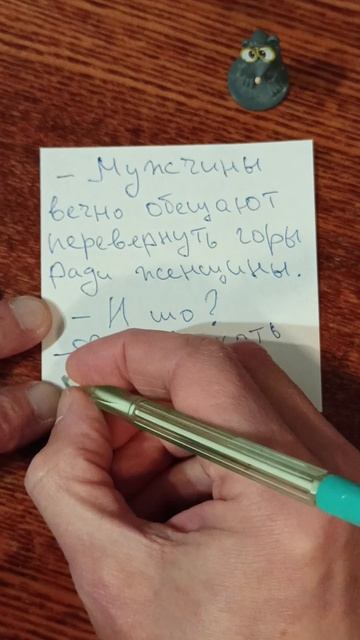 - Мужчины
вечно обещают
перевернуть горы
ради женщины.
- И шо?